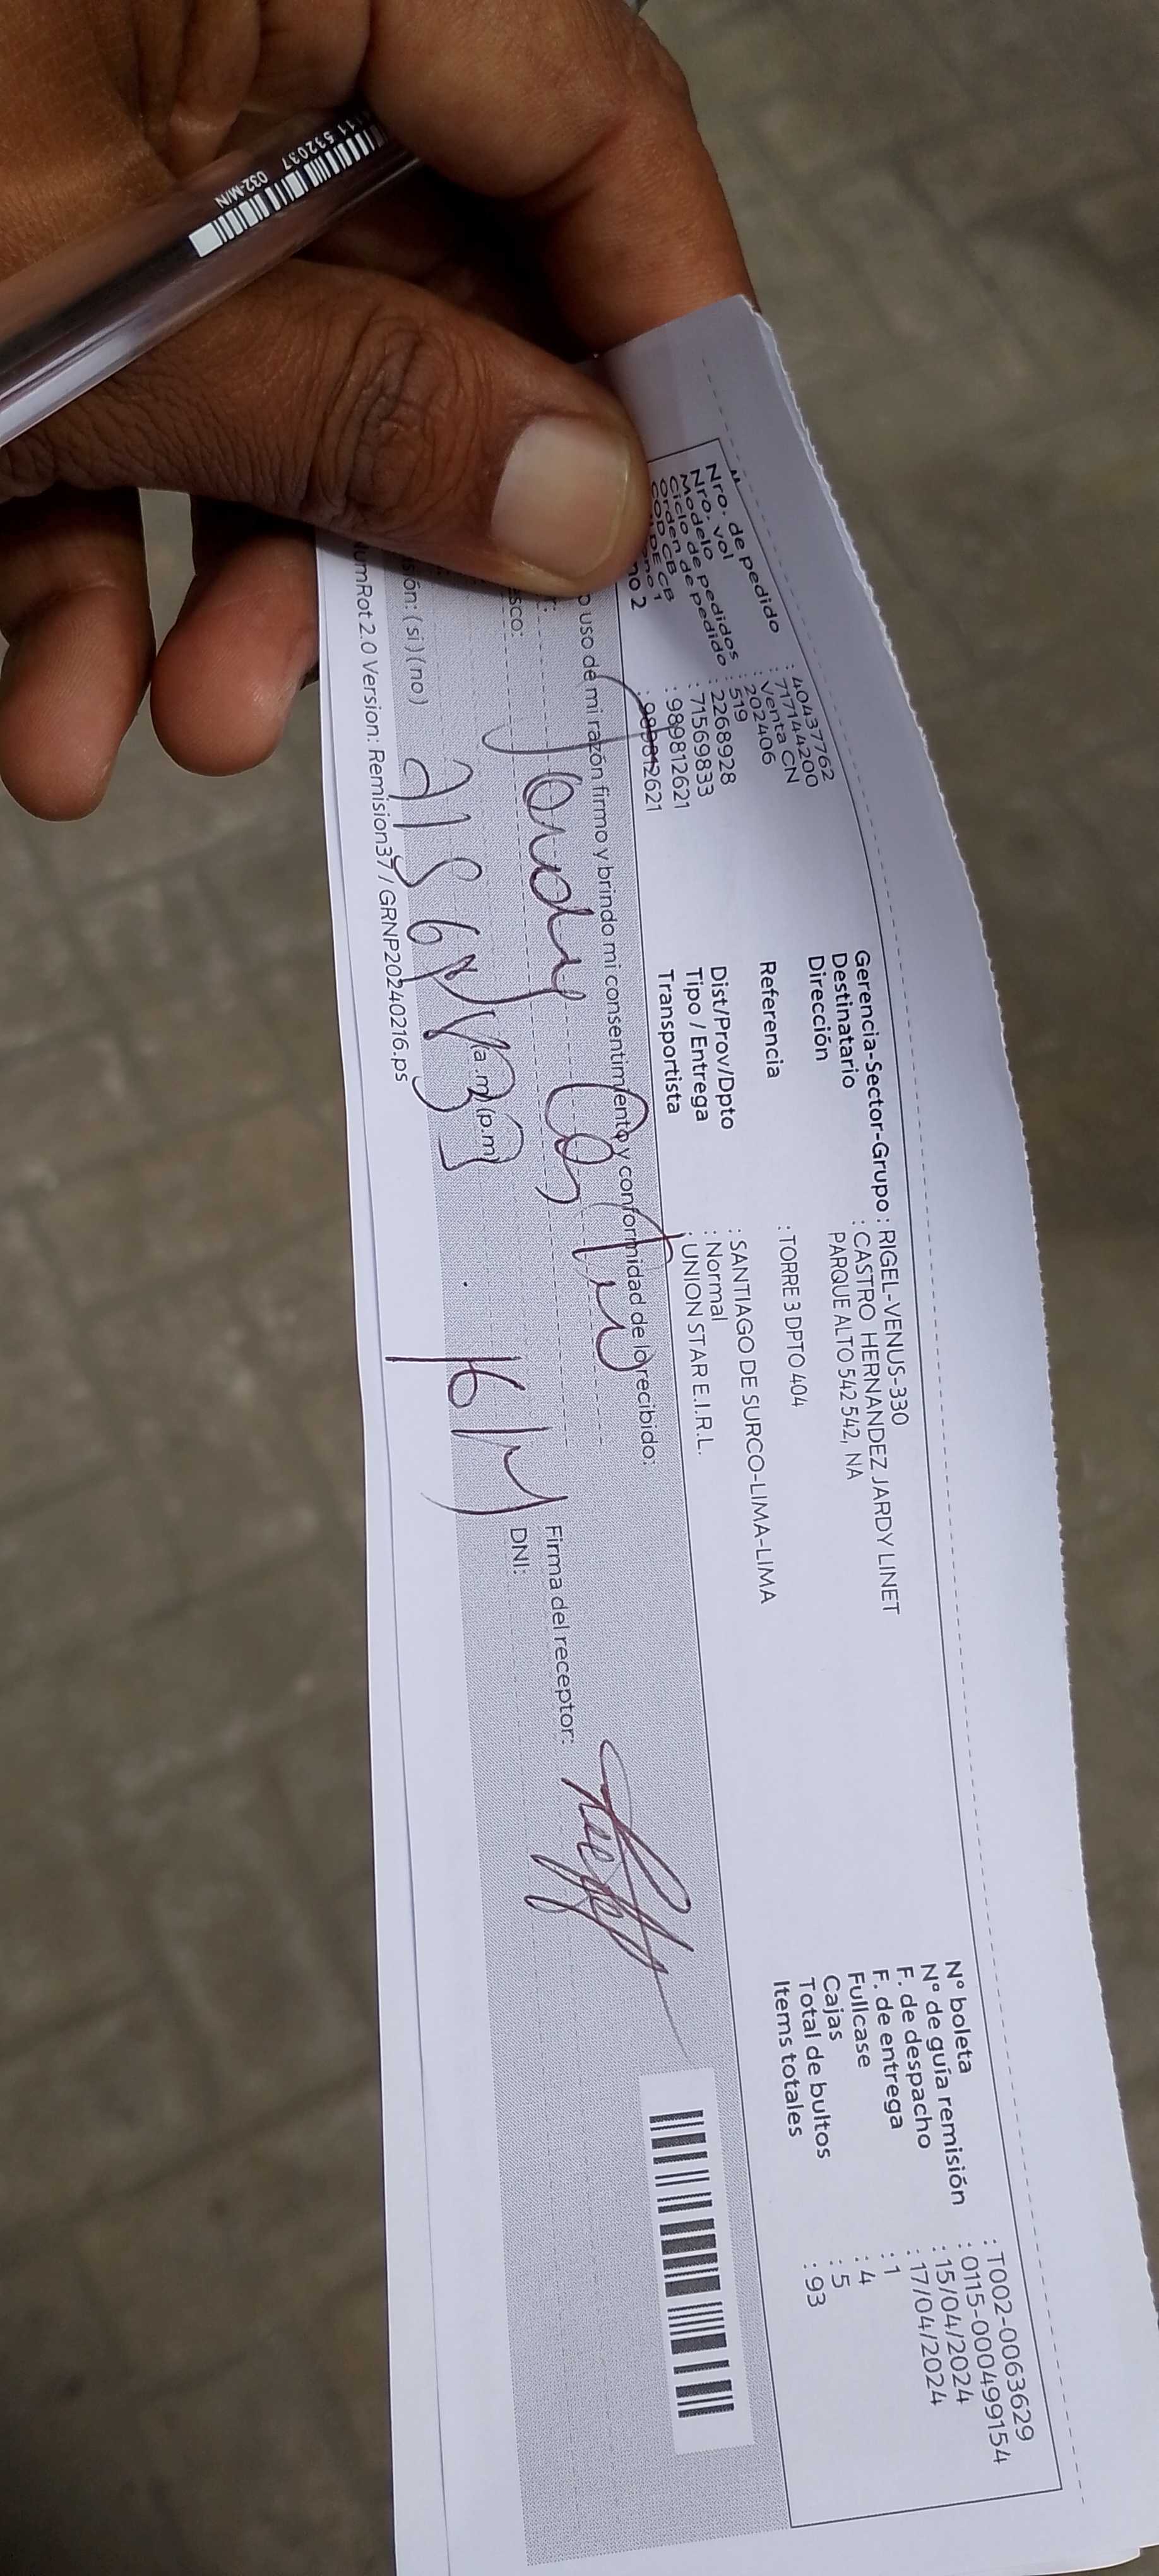 Nro. de pedido : 40437762
Nro. vol : 717144200
Modelo de pedidos : Venta CN
Ciclo de pedido : 202406
Orden CB : 519
COD CB : 2268928
DE CB : 71569833
no 1 : 989812621
no 2 : 989812621
Gerencia-Sector-Grupo : RIGEL-VENUS-330
Destinatario : CASTRO HERNANDEZ JARDY LINET
Dirección PARQUE ALTO 542 542, NA
Referencia : TORRE 3 DPTO 404
Dist/Prov/Dpto : SANTIAGO DE SURCO-LIMA-LIMA
Tipo / Entrega : Normal
Transportista : UNION STAR E.I.R.L.
N° boleta : T002-0063629
N° de guía remisión : 0115-000499154
F. de despacho : 15/04/2024
F. de entrega : 17/04/2024
Fullcase : 1
Cajas : 4
Total de bultos : 5
Items totales : 93
o uso de mi razón firmo y brindo mi consentimiento y conformidad de lo recibido:
sco:
(a.m) (p.m)
Firma del receptor:
DNI:
16
sión: (si) (no)
umRot 2.0 Version: Remision37 / GRNP20240216.ps
11 532037
032-M/N